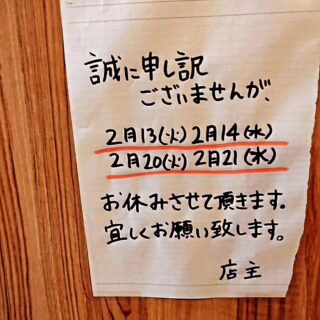 誠に申し訳
ございませんが、
2月13(火) 2月14(水)
2月20(火) 2月21(水)
お休みさせて頂きます。
宜しくお願い致します。
店主